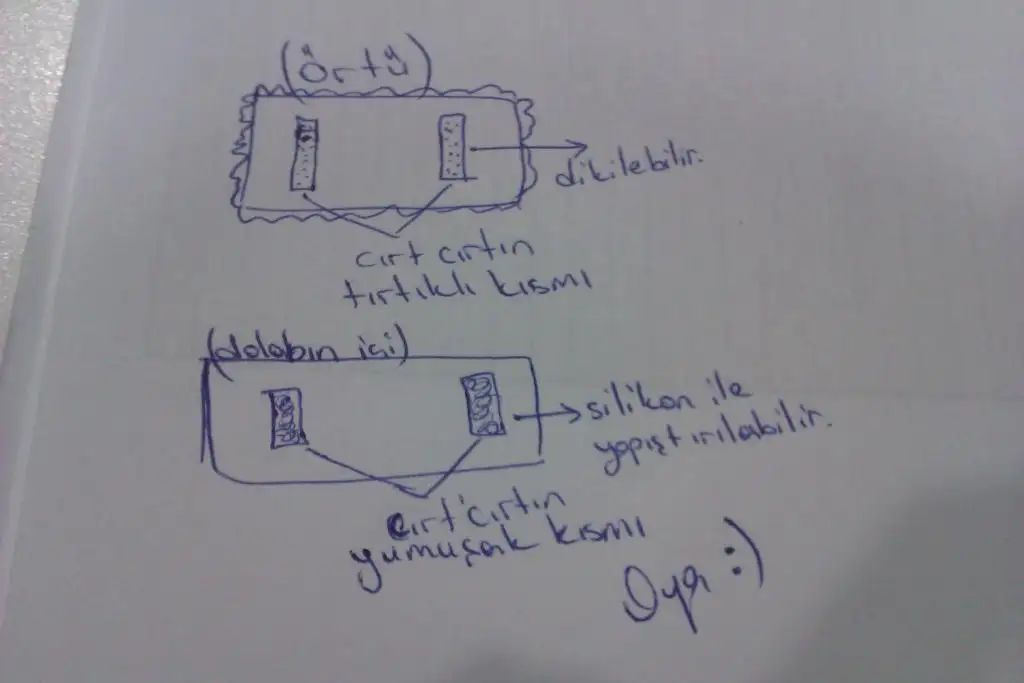 (Örtü)
dikilebilir.
cırt cırtın
tırtıklı kısmı
(dolabın içi)
silikon ile
yapıştırılabilir.
cırt cırtın
yumuşak kısmı
Oya :)